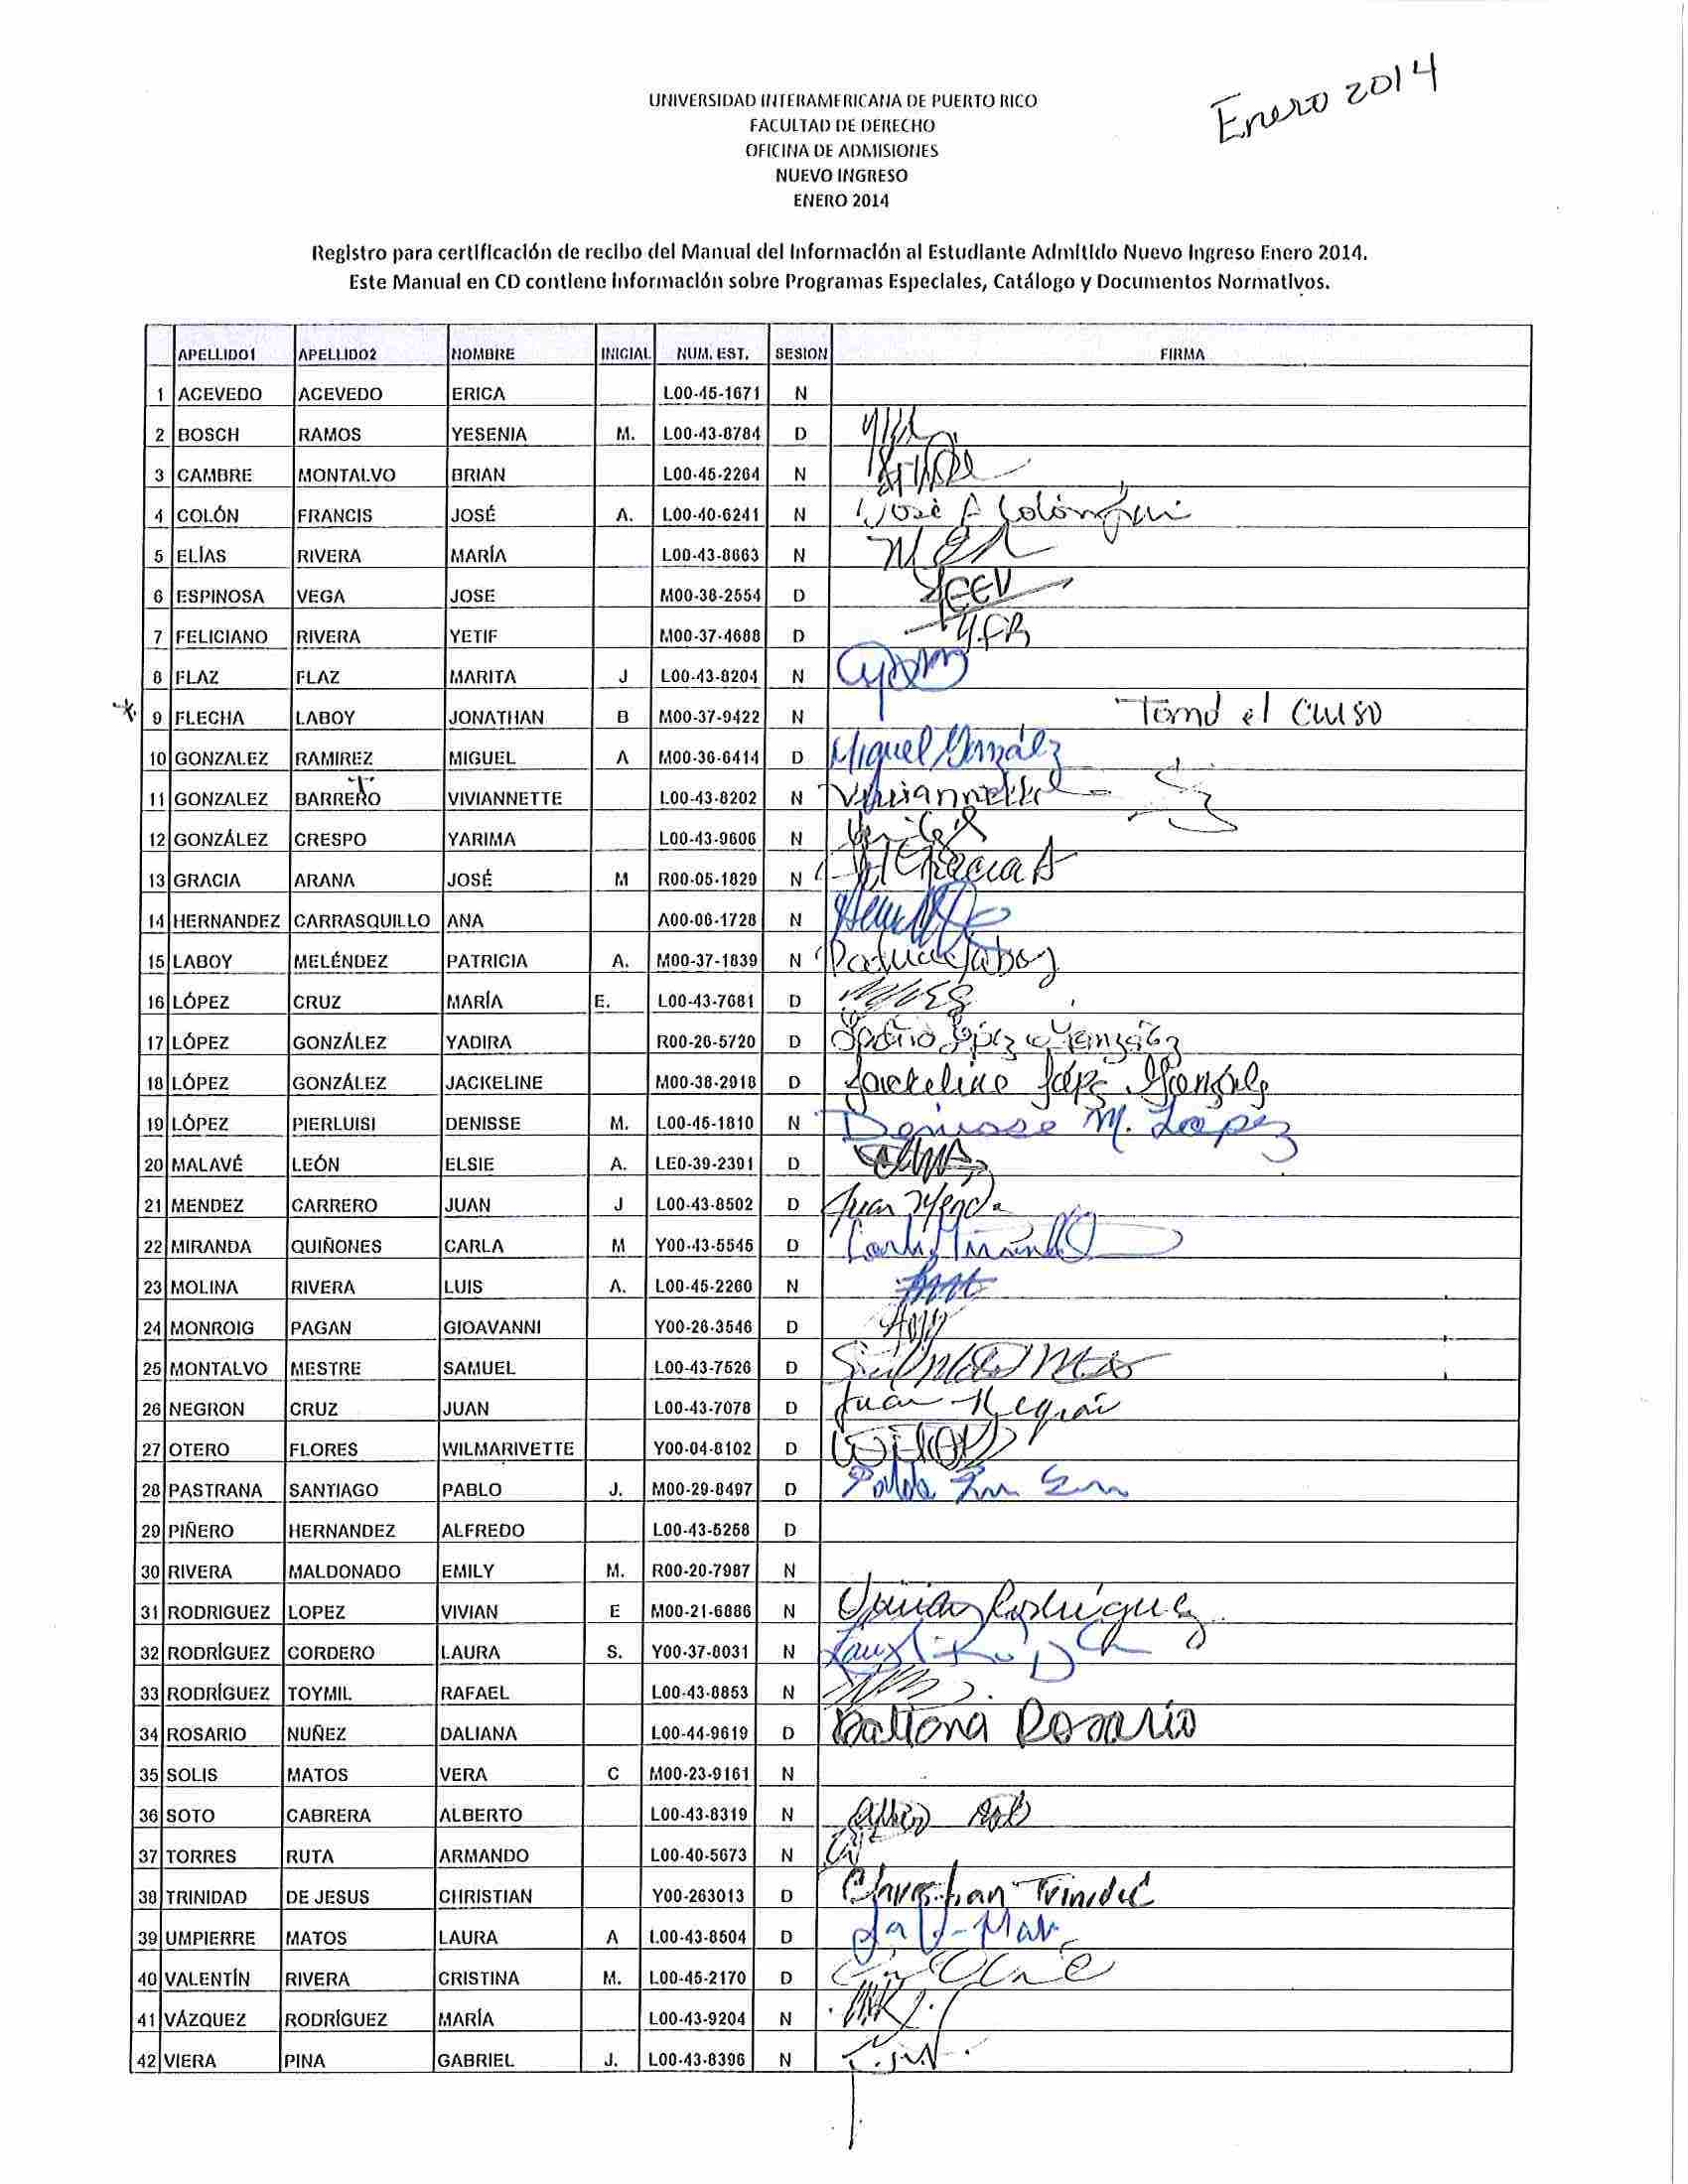 Enero 2014
UNIVERSIDAD INTERAMERICANA DE PUERTO RICO
FACULTAD DE DERECHO
OFICINA DE ADMISIONES
NUEVO INGRESO
ENERO 2014
Registro para certificación de recibo del Manual del Información al Estudiante Admitido Nuevo Ingreso Enero 2014.
Este Manual en CD contiene información sobre Programas Especiales, Catálogo y Documentos Normativos.
APELLIDO1 APELLIDO2 NOMBRE INICIAL NUM. EST. SESION FIRMA
1 ACEVEDO ACEVEDO ERICA L00-45-1671 N
2 BOSCH RAMOS YESENIA M. L00-43-8784 D
3 CAMBRE MONTALVO BRIAN L00-45-2264 N
4 COLÓN FRANCIS JOSÉ A. L00-40-6241 N José A Colón
5 ELÍAS RIVERA MARÍA L00-43-8663 N
6 ESPINOSA VEGA JOSE M00-38-2554 D
7 FELICIANO RIVERA YETIF M00-37-4688 D YFR
8 FLAZ FLAZ MARITA J L00-43-8204 N
* 9 FLECHA LABOY JONATHAN B M00-37-9422 N Tomó el curso
10 GONZALEZ RAMIREZ MIGUEL A M00-36-6414 D Miguel González
11 GONZALEZ BARRETO VIVIANNETTE L00-43-8202 N Viviannette
12 GONZÁLEZ CRESPO YARIMA L00-43-9606 N
13 GRACIA ARANA JOSÉ M R00-05-1829 N Gracia A
14 HERNANDEZ CARRASQUILLO ANA A00-06-1728 N
15 LABOY MELÉNDEZ PATRICIA A. M00-37-1839 N Patricia Laboy
16 LÓPEZ CRUZ MARÍA E. L00-43-7681 D
17 LÓPEZ GONZÁLEZ YADIRA R00-26-5720 D López González
18 LÓPEZ GONZÁLEZ JACKELINE M00-38-2918 D Jackeline López González
19 LÓPEZ PIERLUISI DENISSE M. L00-45-1810 N Denisse M. López
20 MALAVÉ LEÓN ELSIE A. LE0-39-2391 D
21 MENDEZ CARRERO JUAN J L00-43-8502 D Juan Mendez
22 MIRANDA QUIÑONES CARLA M Y00-43-5545 D Carla Miranda
23 MOLINA RIVERA LUIS A. L00-45-2260 N
24 MONROIG PAGAN GIOAVANNI Y00-26-3546 D
25 MONTALVO MESTRE SAMUEL L00-43-7526 D
26 NEGRON CRUZ JUAN L00-43-7078 D Juan Negrón
27 OTERO FLORES WILMARIVETTE Y00-04-8102 D
28 PASTRANA SANTIAGO PABLO J. M00-29-8497 D Pablo
29 PIÑERO HERNANDEZ ALFREDO L00-43-5258 D
30 RIVERA MALDONADO EMILY M. R00-20-7987 N
31 RODRIGUEZ LOPEZ VIVIAN E M00-21-6886 N Vivian Rodriguez
32 RODRÍGUEZ CORDERO LAURA S. Y00-37-8031 N
33 RODRÍGUEZ TOYMIL RAFAEL L00-43-8853 N
34 ROSARIO NUÑEZ DALIANA L00-44-9619 D Daliana Rosario
35 SOLIS MATOS VERA C M00-23-9161 N
36 SOTO CABRERA ALBERTO L00-43-8319 N
37 TORRES RUTA ARMANDO L00-40-5673 N
38 TRINIDAD DE JESUS CHRISTIAN Y00-263013 D Christian Trinidad
39 UMPIERRE MATOS LAURA A L00-43-8504 D
40 VALENTÍN RIVERA CRISTINA M. L00-45-2170 D
41 VÁZQUEZ RODRÍGUEZ MARÍA L00-43-9204 N
42 VIERA PINA GABRIEL J. L00-43-8396 N